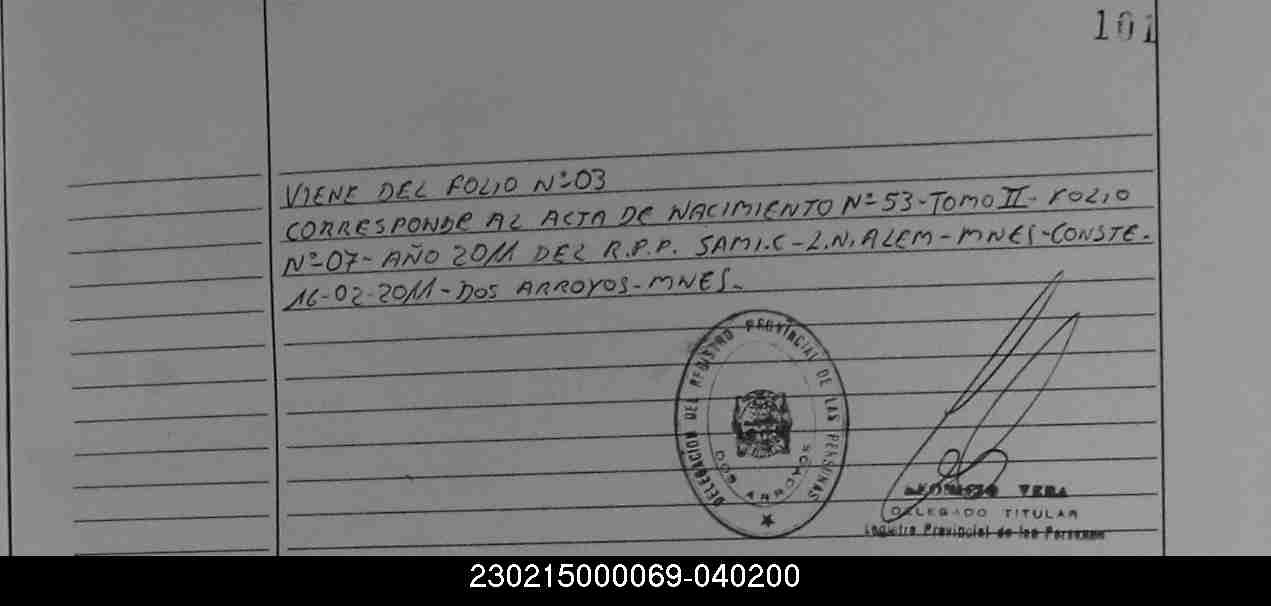 101
VIENE DEL FOLIO Nº-03
CORRESPONDE AL ACTA DE NACIMIENTO Nº-53-TOMO II-FOLIO
Nº-07-AÑO 2011 DEL R.P.P. SAMI.C-L.N.ALEM-MNES-CONSTE.
16-02-2011-DOS ARROYOS-MNES.
DELEGACION DEL REGISTRO PROVINCIAL DE LAS PERSONAS
DOS ARROYOS
VERA
DELEGADO TITULAR
Registro Provincial de las Personas
230215000069-040200